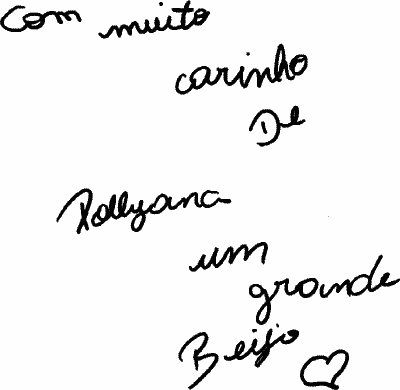 Com muito
carinho
De
Pollyana
um
grande
Beijo